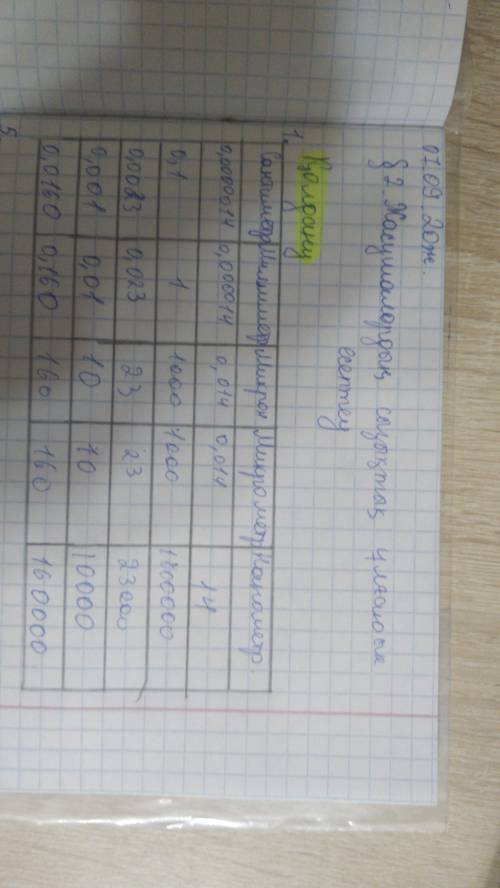 07.09. 20ж.
§ 2. Жасушалардың сызықтық ұлғаюын
есептеу
1. Қолдану
Сантиметр Миллиметр Микрон Микрометр Нанометр.
0,0000014 0,000014 0,014 0,014 14
0,1 1 1000 1000 1000000
0,0023 0,023 23 23 23000
0,001 0,01 10 10 10000
0,0160 0,160 160 160 160000